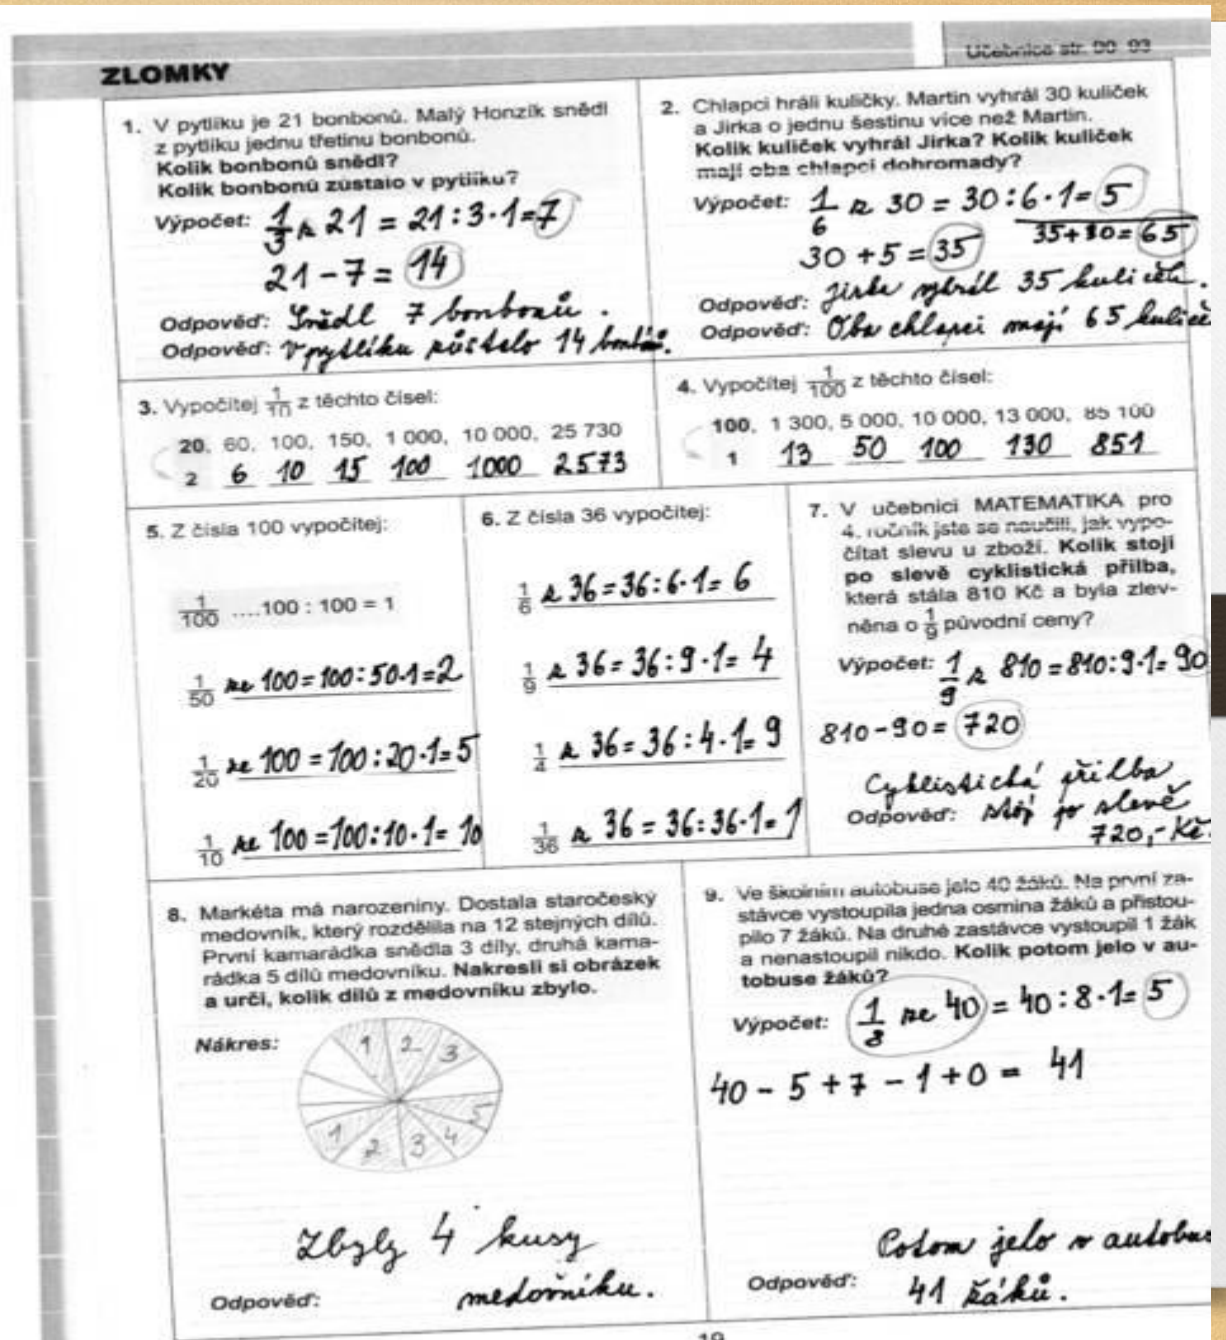 Učebnice str. 90 93
ZLOMKY
1. V pytlíku je 21 bonbonů. Malý Honzík snědl
z pytlíku jednu třetinu bonbonů.
Kolik bonbonů snědl?
Kolik bonbonů zůstalo v pytlíku?
Výpočet: 1/3 z 21 = 21 : 3 · 1 = 7
21 - 7 = 14
Odpověď: Snědl 7 bonbonů.
Odpověď: V pytlíku zůstalo 14 bonbonů.
2. Chlapci hráli kuličky. Martin vyhrál 30 kuliček
a Jirka o jednu šestinu více než Martin.
Kolik kuliček vyhrál Jirka? Kolik kuliček
mají oba chlapci dohromady?
Výpočet: 1/6 z 30 = 30 : 6 · 1 = 5
30 + 5 = 35
35 + 30 = 65
Odpověď: Jirka vyhrál 35 kuliček.
Odpověď: Oba chlapci mají 65 kuliče
3. Vypočítej 1/10 z těchto čísel:
20, 60, 100, 150, 1 000, 10 000, 25 730
2 6 10 15 100 1000 2573
4. Vypočítej 1/100 z těchto čísel:
100, 1 300, 5 000, 10 000, 13 000, 85 100
1 13 50 100 130 851
5. Z čísla 100 vypočítej:
1/100 ....100 : 100 = 1
1/50 ze 100 = 100 : 50 · 1 = 2
1/20 ze 100 = 100 : 20 · 1 = 5
1/10 ze 100 = 100 : 10 · 1 = 10
6. Z čísla 36 vypočítej:
1/6 z 36 = 36 : 6 · 1 = 6
1/9 z 36 = 36 : 9 · 1 = 4
1/4 z 36 = 36 : 4 · 1 = 9
1/36 z 36 = 36 : 36 · 1 = 1
7. V učebnici MATEMATIKA pro
4. ročník jste se naučili, jak vypo-
čítat slevu u zboží. Kolik stojí
po slevě cyklistická přilba,
která stála 810 Kč a byla zlev-
něna o 1/9 původní ceny?
Výpočet: 1/9 z 810 = 810 : 9 · 1 = 90
810 - 90 = 720
Cyklistická přilba
Odpověď: stojí po slevě
720,- Kč.
8. Markéta má narozeniny. Dostala staročeský
medovník, který rozdělila na 12 stejných dílů.
První kamarádka snědla 3 díly, druhá kama-
rádka 5 dílů medovníku. Nakresli si obrázek
a urči, kolik dílů z medovníku zbylo.
Nákres:
1 2 3
1 2 3 4 5
Zbyly 4 kusy
Odpověď: medovníku.
9. Ve školním autobuse jelo 40 žáků. Na první za-
stávce vystoupila jedna osmina žáků a přistou-
pilo 7 žáků. Na druhé zastávce vystoupil 1 žák
a nenastoupil nikdo. Kolik potom jelo v au-
tobuse žáků?
Výpočet: 1/8 ze 40 = 40 : 8 · 1 = 5
40 - 5 + 7 - 1 + 0 = 41
Potom jelo v autobus
Odpověď: 41 žáků.
19